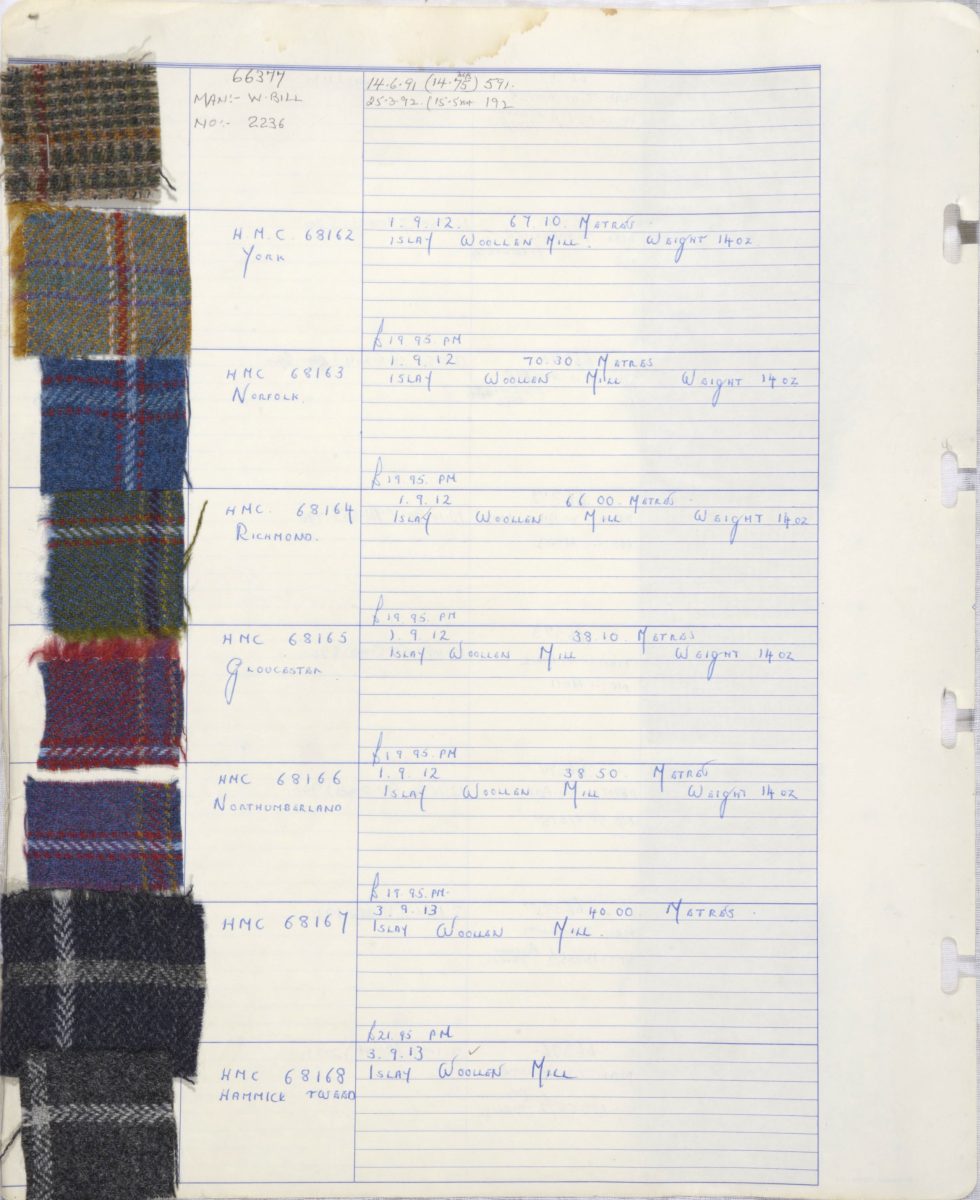 66377
MAN:- W. BILL
NO:- 2236
14.6.91 (14.75) 591.
25.3.92. (15.5 192
H.M.C. 68162
YORK
1. 9. 12. 67.10. METRES
ISLAY WOOLLEN MILL. WEIGHT 14 OZ.
£19.95 PM
HMC 68163
NORFOLK.
1. 9. 12 70.30. METRES
ISLAY WOOLLEN MILL WEIGHT 14 OZ
£19.95. PM
HMC. 68164
RICHMOND.
1. 9. 12 66.00. METRES.
ISLAY WOOLLEN MILL WEIGHT 14 OZ
£19.95 PM
HMC 68165
GLOUCESTER
1. 9. 12 38.10. METRES
ISLAY WOOLLEN MILL WEIGHT 14 OZ
£19.95. PM
HMC 68166
NORTHUMBERLAND
1. 9. 12 38.50. METRES
ISLAY WOOLLEN MILL WEIGHT 14 OZ
£19.95. PM.
HMC 68167
3. 9. 13 40.00 METRES.
ISLAY WOOLLEN MILL.
£21.95 PM
HMC 68168
HAMMICK TWEED
3. 9. 13 ✓
ISLAY WOOLLEN MILL